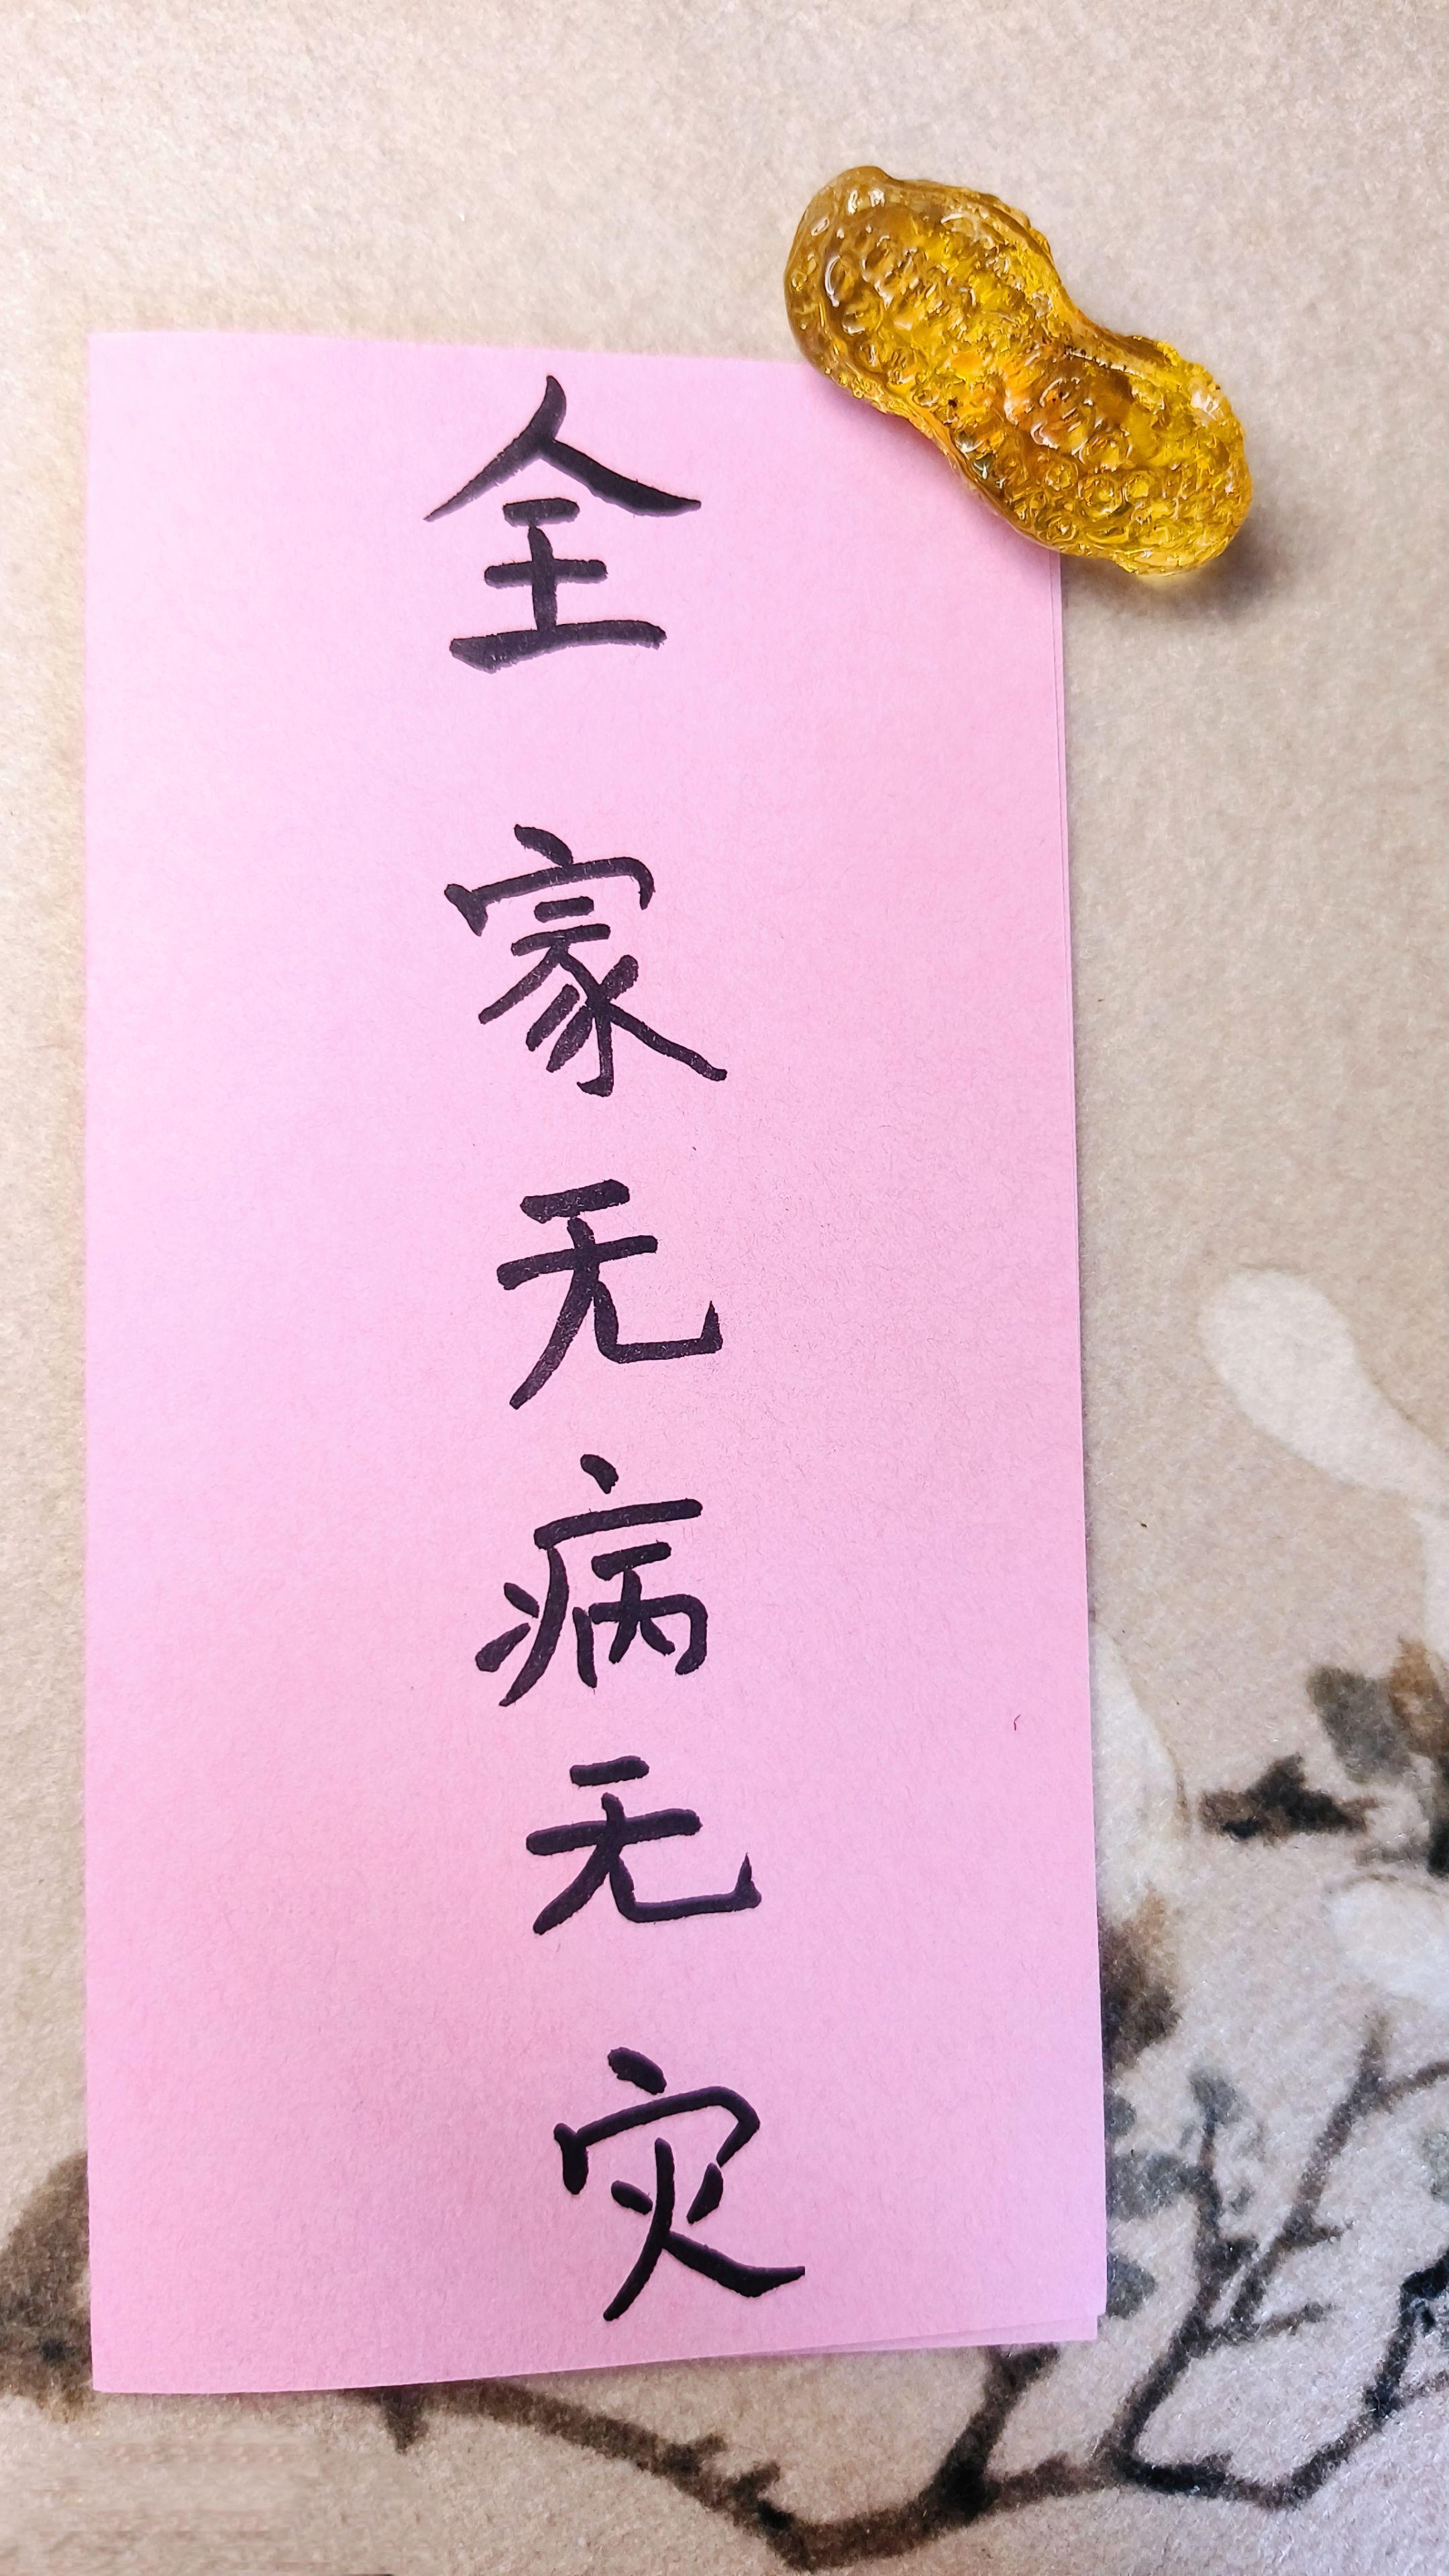 全家无病无灾